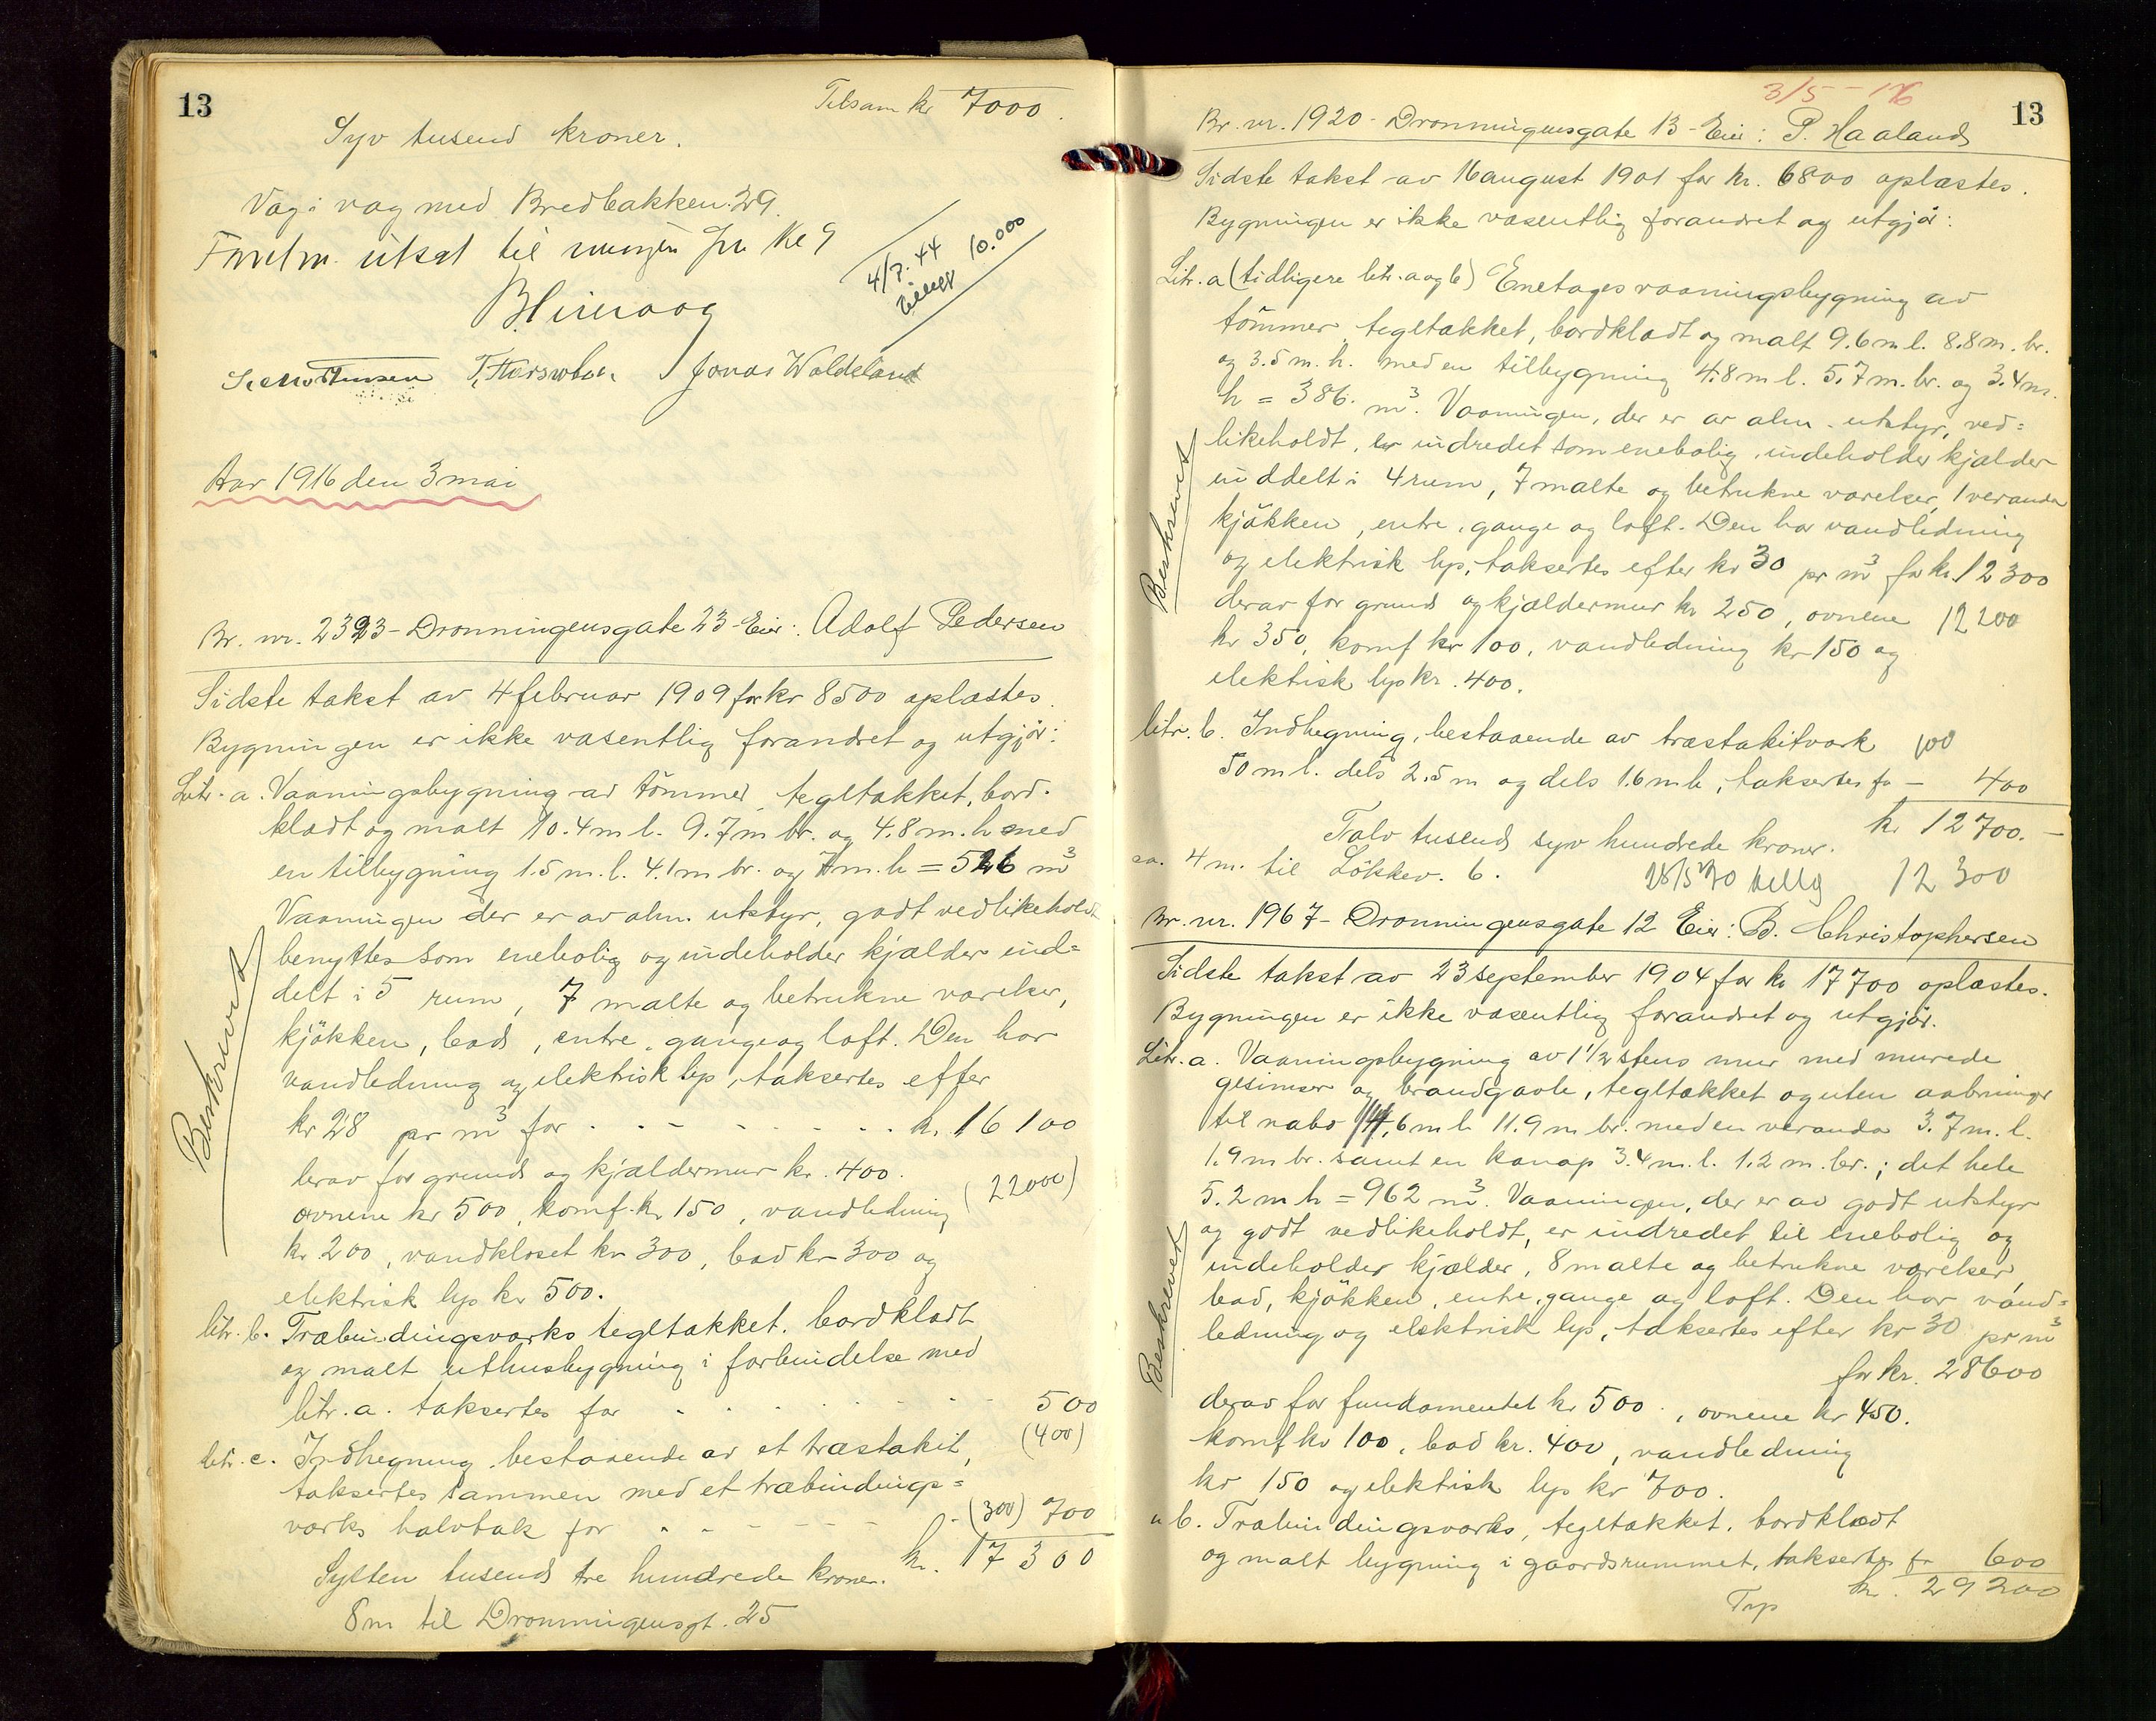 13
Tilsam kr 7000.
Syv tusend kroner.
Væg i væg med Bredbakken 29.
utsat til kl 9
4/7.44 10.000
Jonas Waldeland
Aar 1916 den 3 mai
Br. nr. 2393 - Dronningensgate 23 - Eier: Adolf Pedersen
Sidste takst av 4 februar 1909 for kr 8500 oplæstes.
Bygningen er ikke væsentlig forandret og utgjør:
Litr. a. Vaaningsbygning av tömmer, tegltækket, bord-
klædt og malt 10.4 m l. 9.7 m br. og 4.8 m. h med
en tilbygning 1.5 m. l. 4.1 m br. og 7 m. h = 526 m³
Vaaningen der er av alm. utstyr, godt vedlikeholdt
benyttes som enebolig og indeholder kjælder ind=
delt i 5 rum, 7 malte og betrukne værelser,
kjökken, bad, entre, gange og loft. Den har
vandledning og elektrisk lys, taksertes efter
kr 28 pr m³ for . . - - - - - . . . kr. 16 100
Beskrevet
derav for grund og kjældermur kr. 400.
ovnene kr 500, komf. kr 150, vandledning (22000)
kr 200, vandkloset kr 300, bad kr 300 og
elektrisk lys kr 500.
litr. b. Træbindingsværks tegltækket, bordklædt
og malt uthusbygning i forbindelse med
litr. a. taksertes for . . . . . - - 500
(400)
litr. c. Indhegning, bestaaende av et træstakit,
taksertes sammen med et træbindings=
værks halvtak for . - - - - - - (300) 700
Sytten tusend tre hundrede kroner. kr. 17 300
8 m til Dronningensgt. 25
3/5 - 16
13
Br. nr. 1920 - Dronningensgate 13 - Eier: P. Haaland
Sidste takst av 16 august 1901 for kr. 6800 oplæstes.
Bygningen er ikke væsentlig forandret og utgjør:
Litr. a (tidligere litr. a og b) Enetages vaaningsbygning av
tömmer, tegltækket, bordklædt og malt 9.6 m l. 8.8 m. br.
og 3.5 m. h. med en tilbygning 4.8 m l. 5.7 m. br. og 3.4 m.
h = 386. m³. Vaaningen, der er av alm. utstyr, ved=
likeholdt, er indredet som enebolig, indeholder kjælder
inddelt i 4 rum, 7 malte og betrukne værelser, 1 veranda
kjökken, entre, gange og loft. Den har vandledning
og elektrisk lys, taksertes efter kr 30 pr m³ for kr. 12 300
derav for grund og kjældermur kr 250, ovnene 12 200
kr 350, komf kr 100, vandledning kr 150 og
elektrisk lys kr. 400.
Beskrevet
litr. b. Indhegning, bestaaende av træstakitværk 100
50 m l. dels 2.5 m og dels 1.6 m h, taksertes for - 400
Tolv tusend syv hundrede kroner. kr 12 700. -
ca. 4 m. til Lökkev. 6. 28/5 20 12 300
Br. nr. 1967 - Dronningensgate 12 Eier: B. Christophersen
Sidste takst av 23 september 1904 for kr 17 700 oplæstes.
Bygningen er ikke væsentlig forandret og utgjør.
Litr. a. Vaaningsbygning av 1 1/2 stens mur med murede
gesimser og brandgavle, tegltækket og uten aabninger
til nabo 14.6 m l. 11.9 m br. med en veranda 3.7 m. l.
1.9 m br. samt en kanap 3.4 m. l. 1.2 m. br.; det hele
5.2 m h = 962 m³. Vaaningen, der er av godt utstyr
og godt vedlikeholdt, er indredet til enebolig og
indeholder kjælder, 8 malte og betrukne værelser,
bad, kjökken, entre, gange og loft. Den har vand=
ledning og elektrisk lys, taksertes efter kr 30 pr m³
for kr. 28600
Beskrevet
derav for fundamentet kr 500., ovnene kr 450.
komf kr 100, bad kr. 400, vandledning
kr 150 og elektrisk lys kr 700.
" b. Træbindingsværks, tegltækket, bordklædt
og malt bygning i gaardsrummet, taksertes for 600
kr. 29 200